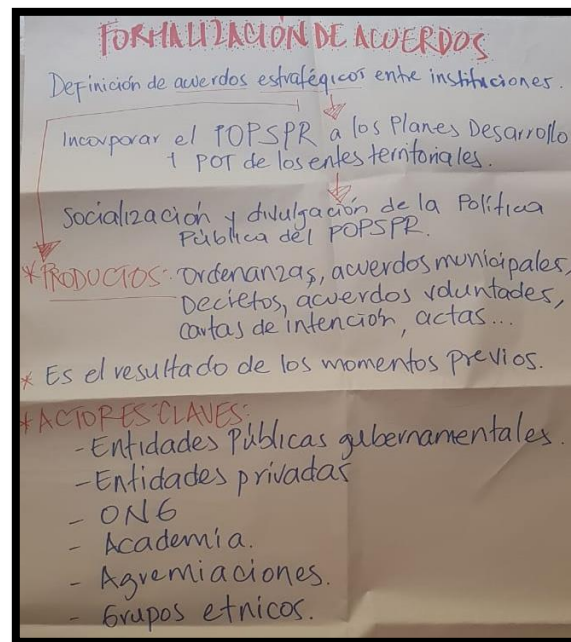 FORMALIZACIÓN DE ACUERDOS
Definición de acuerdos estratégicos entre instituciones.
Incorporar el POPSPR a los Planes Desarrollo
+ POT de los entes territoriales.
Socialización y divulgación de la Política
Pública del POPSPR.
* PRODUCTOS: Ordenanzas, acuerdos municipales,
Decretos, acuerdos voluntades,
cartas de intención, actas...
* Es el resultado de los momentos previos.
* ACTORES CLAVES:
- Entidades Públicas gubernamentales.
- Entidades privadas
- ONG
- Academia.
- Agremiaciones.
- Grupos etnicos.